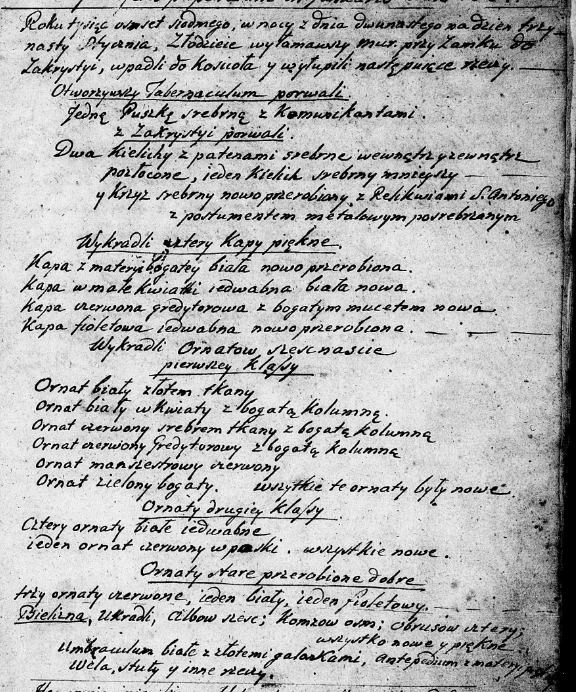 Roku tysiąc osmset siodmego, w nocy z dnia dwunastego na dzien trzy-
nasty Stycznia, Złodzieie wyłamawszy mur przy Zamku do
Zakrystyi, wpadli do Kościoła y wyłupili następuiące rzeczy.
Otworzywszy Tabernaculum porwali.
Jedną Puszkę srebrną z Komunikantami.
z Zakrystyi porwali.
Dwa Kielichy z patenami srebrne wewnątrz y zewnątrz
pozłocone, ieden Kielich srebrny mnieyszy
y Krzyz srebrny nowo przerobiany z Relikwiami S. Antoniego
z postumentem metalowym posrebrzanym
Wykradli cztery Kapy piękne.
Kapa z materyi bogatey biała nowo przerobiona.
Kapa w małe Kwiatki iedwabna biała nowa.
Kapa czerwona gredytorowa z bogatym mucetem nowa
Kapa fioletowa iedwabna nowo przerobiona.
Wykradli Ornatow szesnascie
pierwszey Klassy
Ornat biały złotem tkany
Ornat biały w Kwiaty z bogatą Kolumną.
Ornat czerwony srebrem tkany z bogatą Kolumną
Ornat czerwony Gredytorowy z bogatą Kolumną
Ornat manszestrowy czerwony
Ornat zielony bogaty. wszystkie te ornaty były nowe
Ornaty drugiey Klassy
Cztery ornaty białe iedwabne
ieden ornat czerwony w paski. wszystkie nowe.
Ornaty stare przerobione dobre
trzy ornaty czerwone, ieden biały, ieden fioletowy.
Bielizna, Ukradli, Albow szesc; Komzow osm; obrusow cztery;
wszystko nowe y piękne
Umbraculum białe z złotemi galonkami, Antepedium z materyi
Wela, stuły y inne rzeczy.